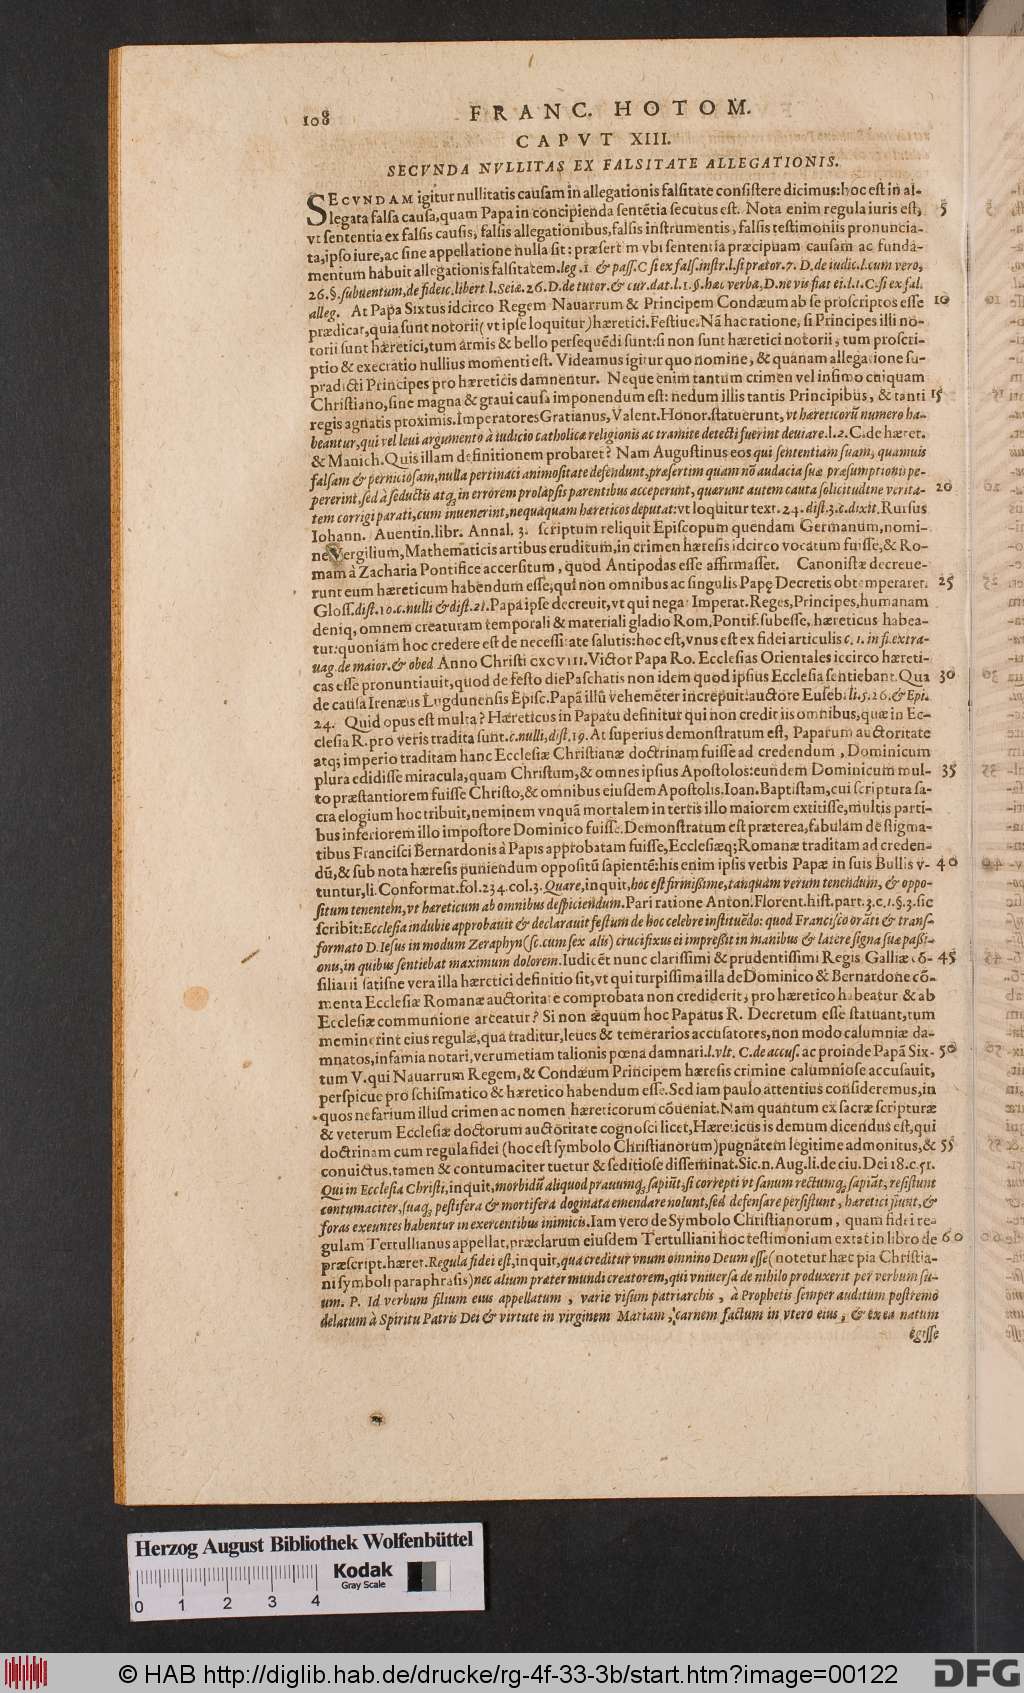 108
FRANC. HOTOM.
CAPVT XIII.
SECVNDA NVLLITAS EX FALSITATE ALLEGATIONIS.
SECVNDAM igitur nullitatis causam in allegationis falsitate consistere dicimus: hoc est in al-
legata falsa causa, quam Papa in concipienda sentētia secutus est. Nota enim regula iuris est, 5
vt sententia ex falsis causis, falsis allegationibus, falsis instrumentis, falsis testimoniis pronuncia-
ta, ipso iure, ac sine appellatione nulla sit: præsertim vbi sententia præcipuam causam ac funda-
mentum habuit allegationis falsitatem. leg. 1 & pass. C si ex fals. instr. l. si prætor. 7. D. de iudic. l. cum vero,
26. §. subuentum, de fideic. libert. l. Seiæ. 26. D. de tutor. & cur. dat. l. 1. §. hæc verba, D. ne vis fiat ei. l. 1. C. si ex fal.
alleg. At Papa Sixtus idcirco Regem Nauarrum & Principem Condæum ab se proscriptos esse 10
prædicat, quia sunt notorii (vt ipse loquitur) hæretici. Festiue. Nā hac ratione, si Principes illi no-
torii sunt hæretici, tum armis & bello persequēdi sunt: si non sunt hæretici notorii, tum proscri-
ptio & execratio nullius momenti est. Videamus igitur quo nomine, & quanam allegatione su-
pradicti Principes pro hæreticis damnentur. Neque enim tantum crimen vel infimo cuiquam
Christiano, sine magna & graui causa imponendum est: nedum illis tantis Principibus, & tanti 15
regis agnatis proximis. Imperatores Gratianus, Valent. Honor. statuerunt, vt hæreticorū numero ha-
beantur, qui vel leui argumento à iudicio catholicæ religionis ac tramite detecti fuerint deuiare. l. 2. C. de hæret.
& Manich. Quis illam definitionem probaret? Nam Augustinus eos qui sententiam suam, quamuis
falsam & perniciosam, nulla pertinaci animositate defendunt, præsertim quam nō audacia suæ præsumptionis pe-
pererint, sed à seductis atq; in errorem prolapsis parentibus acceperunt, quærunt autem cauta solicitudine verita- 20
tem corrigi parati, cum inuenerint, nequaquam hæreticos deputat: vt loquitur text. 24. dist. 3. c. dixit. Rursus
Iohann. Auentin. libr. Annal. 3. scriptum reliquit Episcopum quendam Germanum, nomi-
ne Vergilium, Mathematicis artibus eruditum, in crimen hæresis idcirco vocatum fuisse, & Ro-
mam à Zacharia Pontifice accersitum, quod Antipodas esse affirmasset. Canonistæ decreue-
runt eum hæreticum habendum esse, qui non omnibus ac singulis Papę Decretis obtemperaret. 25
Gloss. dist. 10. c. nulli & dist. 21. Papa ipse decreuit, vt qui negat Imperat. Reges, Principes, humanam
deniq, omnem creaturam temporali & materiali gladio Rom. Pontif. subesse, hæreticus habea-
tur: quoniam hoc credere est de necessitate salutis: hoc est, vnus est ex fidei articulis c. 1. in fi. extra-
uag. de maior. & obed Anno Christi CXCVIII. Victor Papa Ro. Ecclesias Orientales iccirco hæreti-
cas esse pronuntiauit, quod de festo die Paschatis non idem quod ipsius Ecclesia sentiebant. Qua 30
de causa Irenæus Lugdunensis Episc. Papā illū vehemēter increpuit: auctore Euseb. li. 5. 26. & Epi.
24. Quid opus est multa? Hæreticus in Papatu definitur qui non credit iis omnibus, quæ in Ec-
clesia R. pro veris tradita sunt. c. nulli, dist. 19. At superius demonstratum est, Paparum auctoritate
atq; imperio traditam hanc Ecclesiæ Christianæ doctrinam fuisse ad credendum, Dominicum
plura edidisse miracula, quam Christum, & omnes ipsius Apostolos: eundem Dominicum mul- 35
to præstantiorem fuisse Christo, & omnibus eiusdem Apostolis. Ioan. Baptistam, cui scriptura sa-
cra elogium hoc tribuit, neminem vnquā mortalem in terris illo maiorem extitisse, multis parti-
bus inferiorem illo impostore Dominico fuisse. Demonstratum est præterea, fabulam de stigma-
tibus Francisci Bernardonis à Papis approbatam fuisse, Ecclesiæq; Romanæ traditam ad creden-
dū, & sub nota hæresis puniendum oppositū sapientē: his enim ipsis verbis Papæ in suis Bullis v- 40
tuntur, li. Conformat. fol. 234. col. 3. Quare, inquit, hoc est firmissime, tanquam verum tenendum, & oppo-
situm tenentem, vt hæreticum ab omnibus despiciendum. Pari ratione Anton. Florent. hist. part. 3. c. 1. §. 3. sic
scribit: Ecclesia indubie approbauit & declarauit festum de hoc celebre instituēdo: quod Francisco orāti & trans-
formato D. Iesus in modum Zeraphyn (sc. cum sex alis) crucifixus ei impressit in manibus & latere signa suæ passi-
onis, in quibus sentiebat maximum dolorem. Iudicēt nunc clarissimi & prudentissimi Regis Galliæ cō- 45
siliarii satisne vera illa hæretici definitio sit, vt qui turpissima illa de Dominico & Bernardone cō-
menta Ecclesiæ Romanæ auctoritate comprobata non crediderit, pro hæretico habeatur & ab
Ecclesiæ communione arceatur? Si non æquum hoc Papatus R. Decretum esse statuant, tum
meminerint eius regulæ, qua traditur, leues & temerarios accusatores, non modo calumniæ da-
mnatos, infamia notari, verumetiam talionis pœna damnari. l. vlt. C. de accus. ac proinde Papā Six- 50
tum V. qui Nauarrum Regem, & Condæum Principem hæresis crimine calumniose accusauit,
perspicue pro schismatico & hæretico habendum esse. Sed iam paulo attentius consideremus, in
quos nefarium illud crimen ac nomen hæreticorum cōueniat. Nam quantum ex sacræ scripturæ
& veterum Ecclesiæ doctorum auctoritate cognosci licet, Hæreticus is demum dicendus est, qui
doctrinam cum regula fidei (hoc est symbolo Christianorum) pugnātem legitime admonitus, & 55
conuictus, tamen & contumaciter tuetur & seditiose disseminat. Sic. n. Aug. li. de ciu. Dei 18. c. 51.
Qui in Ecclesia Christi, inquit, morbidū aliquod prauumq; sapiūt, si correpti vt sanum rectumq; sapiāt, resistunt
contumaciter, suaq; pestifera & mortifera dogmata emendare nolunt, sed defensare persistunt, hæretici fiunt, &
foras exeuntes habentur in exercentibus inimicis. Iam vero de Symbolo Christianorum, quam fidei re-
gulam Tertullianus appellat, præclarum eiusdem Tertulliani hoc testimonium extat in libro de 60
præscript. hæret. Regula fidei est, inquit, qua creditur vnum omnino Deum esse (notetur hæc pia Christia-
ni symboli paraphrasis) nec alium præter mundi creatorem, qui vniuersa de nihilo produxerit per verbum su-
um. P. Id verbum filium eius appellatum, varie visum patriarchis, à Prophetis semper auditum postremò
delatum à Spiritu Patris Dei & virtute in virginem Mariam, carnem factum in vtero eius, & ex ea natum
egisse
Herzog August Bibliothek Wolfenbüttel
Kodak
Gray Scale
0 1 2 3 4
© HAB http://diglib.hab.de/drucke/rg-4f-33-3b/start.htm?image=00122
DFG